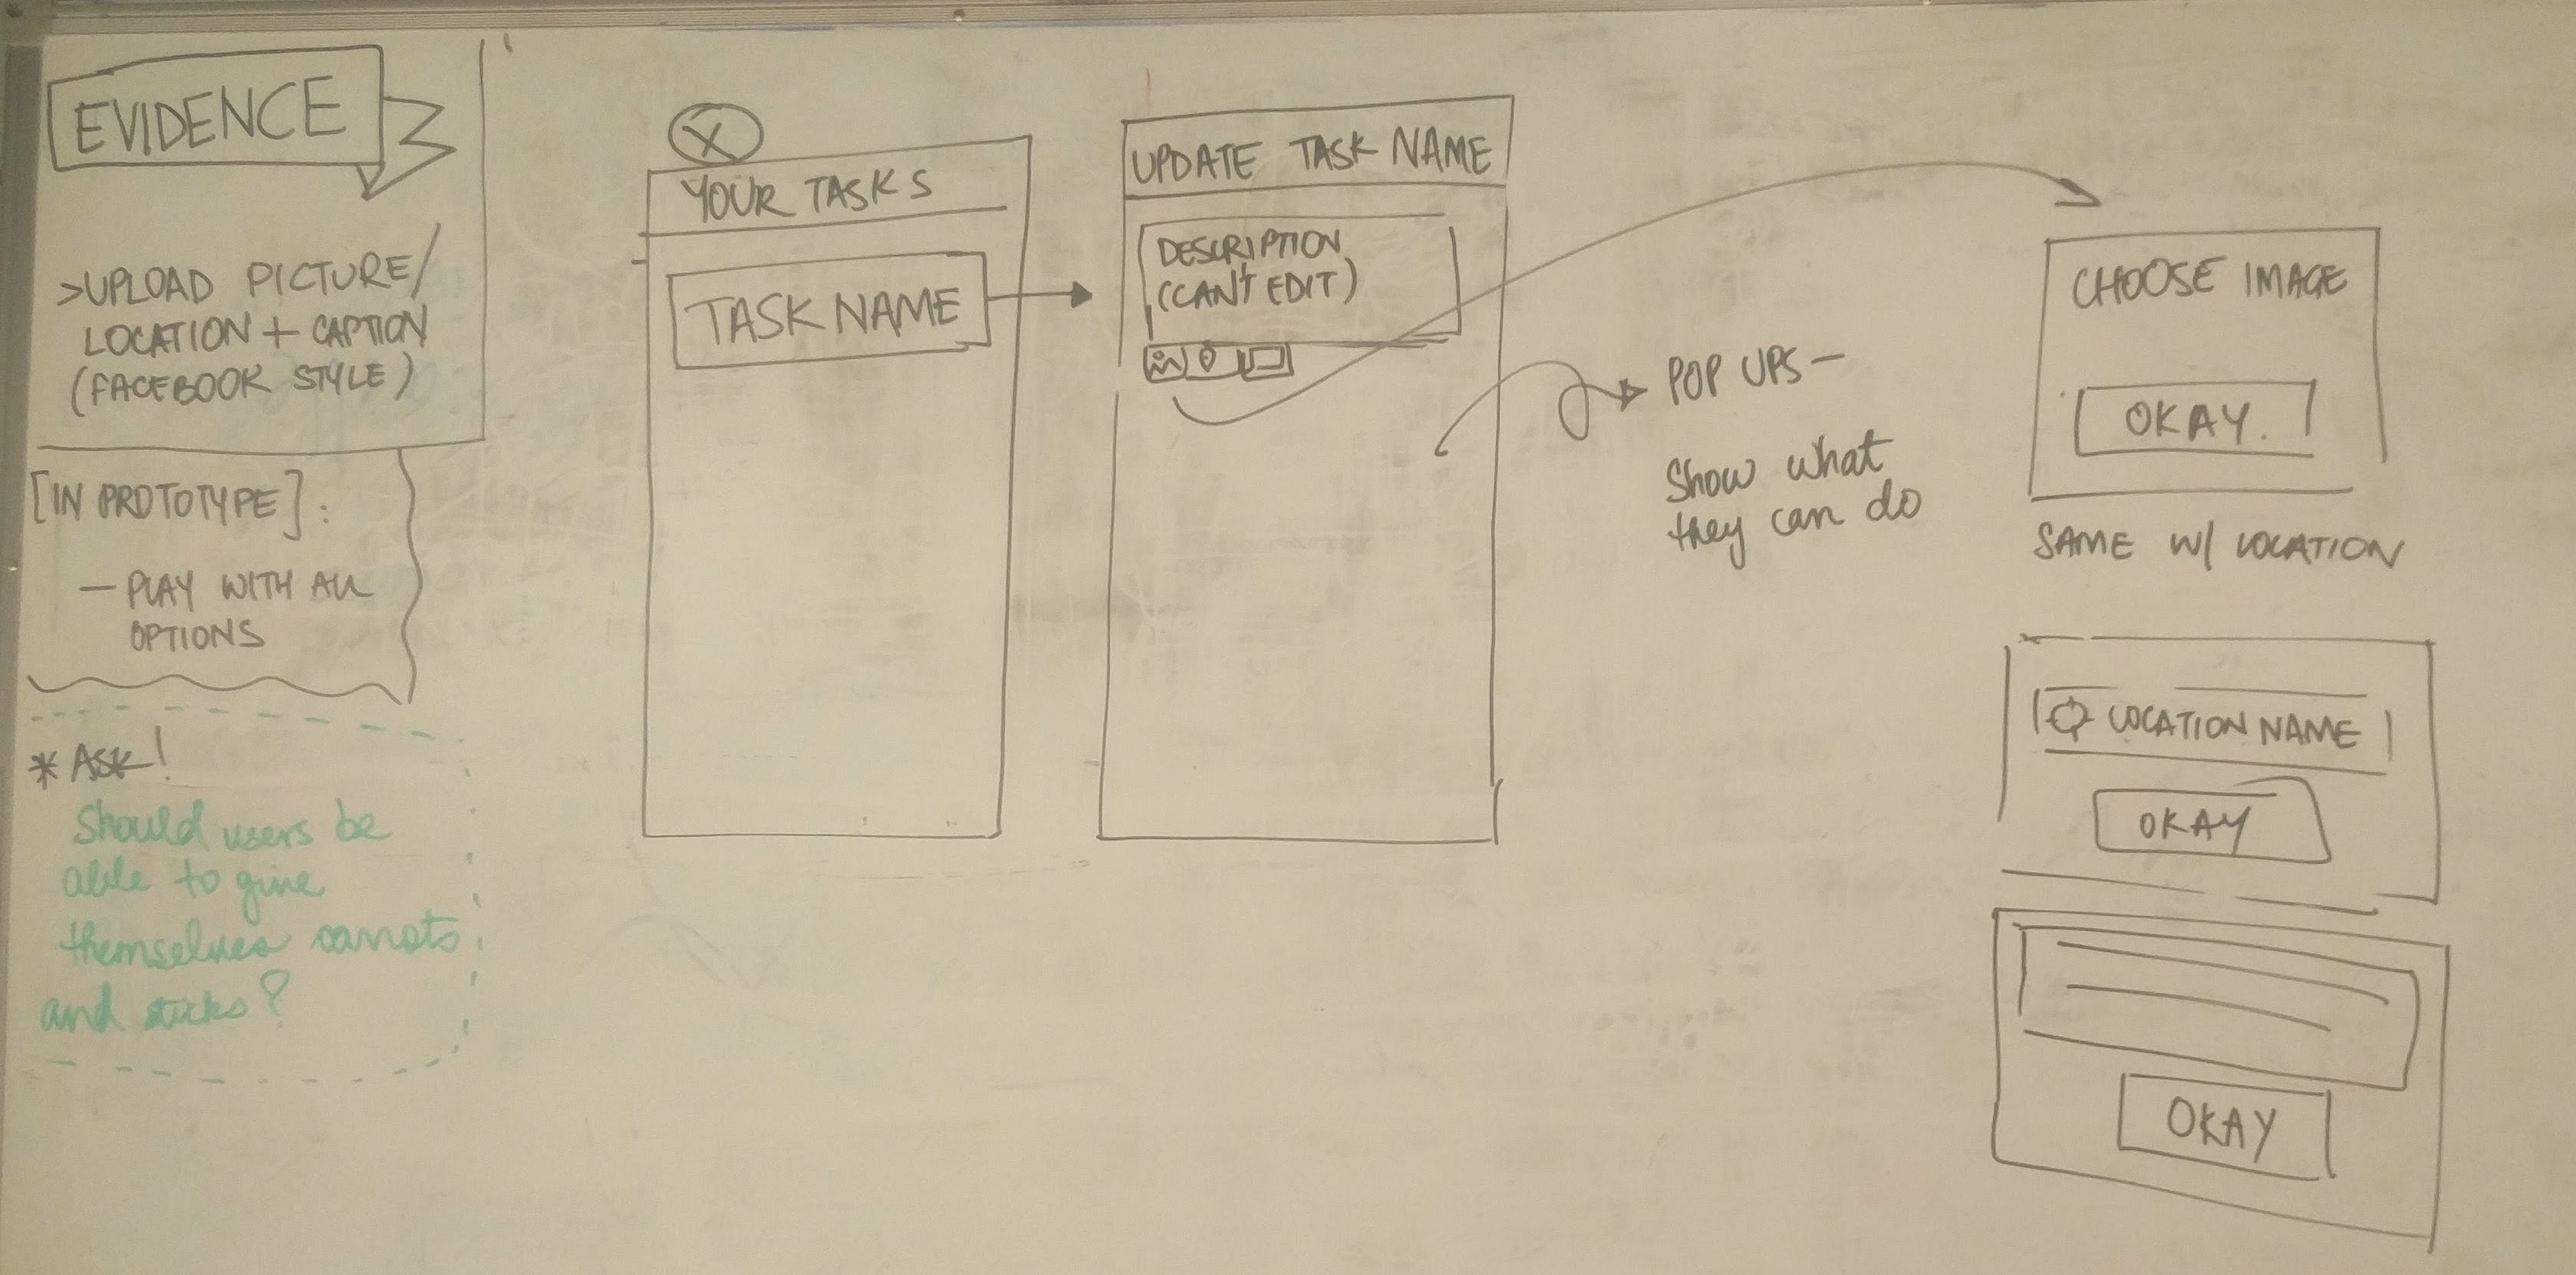 EVIDENCE
>UPLOAD PICTURE/
LOCATION + CAPTION
(FACEBOOK STYLE)
[IN PROTOTYPE]:
— PLAY WITH ALL
OPTIONS
* ASK!
Should users be
able to give
themselves carrots
and sticks?
X
YOUR TASKS
TASK NAME
UPDATE TASK NAME
DESCRIPTION
(CAN'T EDIT)
POP UPS —
Show what
they can do
CHOOSE IMAGE
OKAY.
SAME W/ LOCATION
LOCATION NAME
OKAY
OKAY